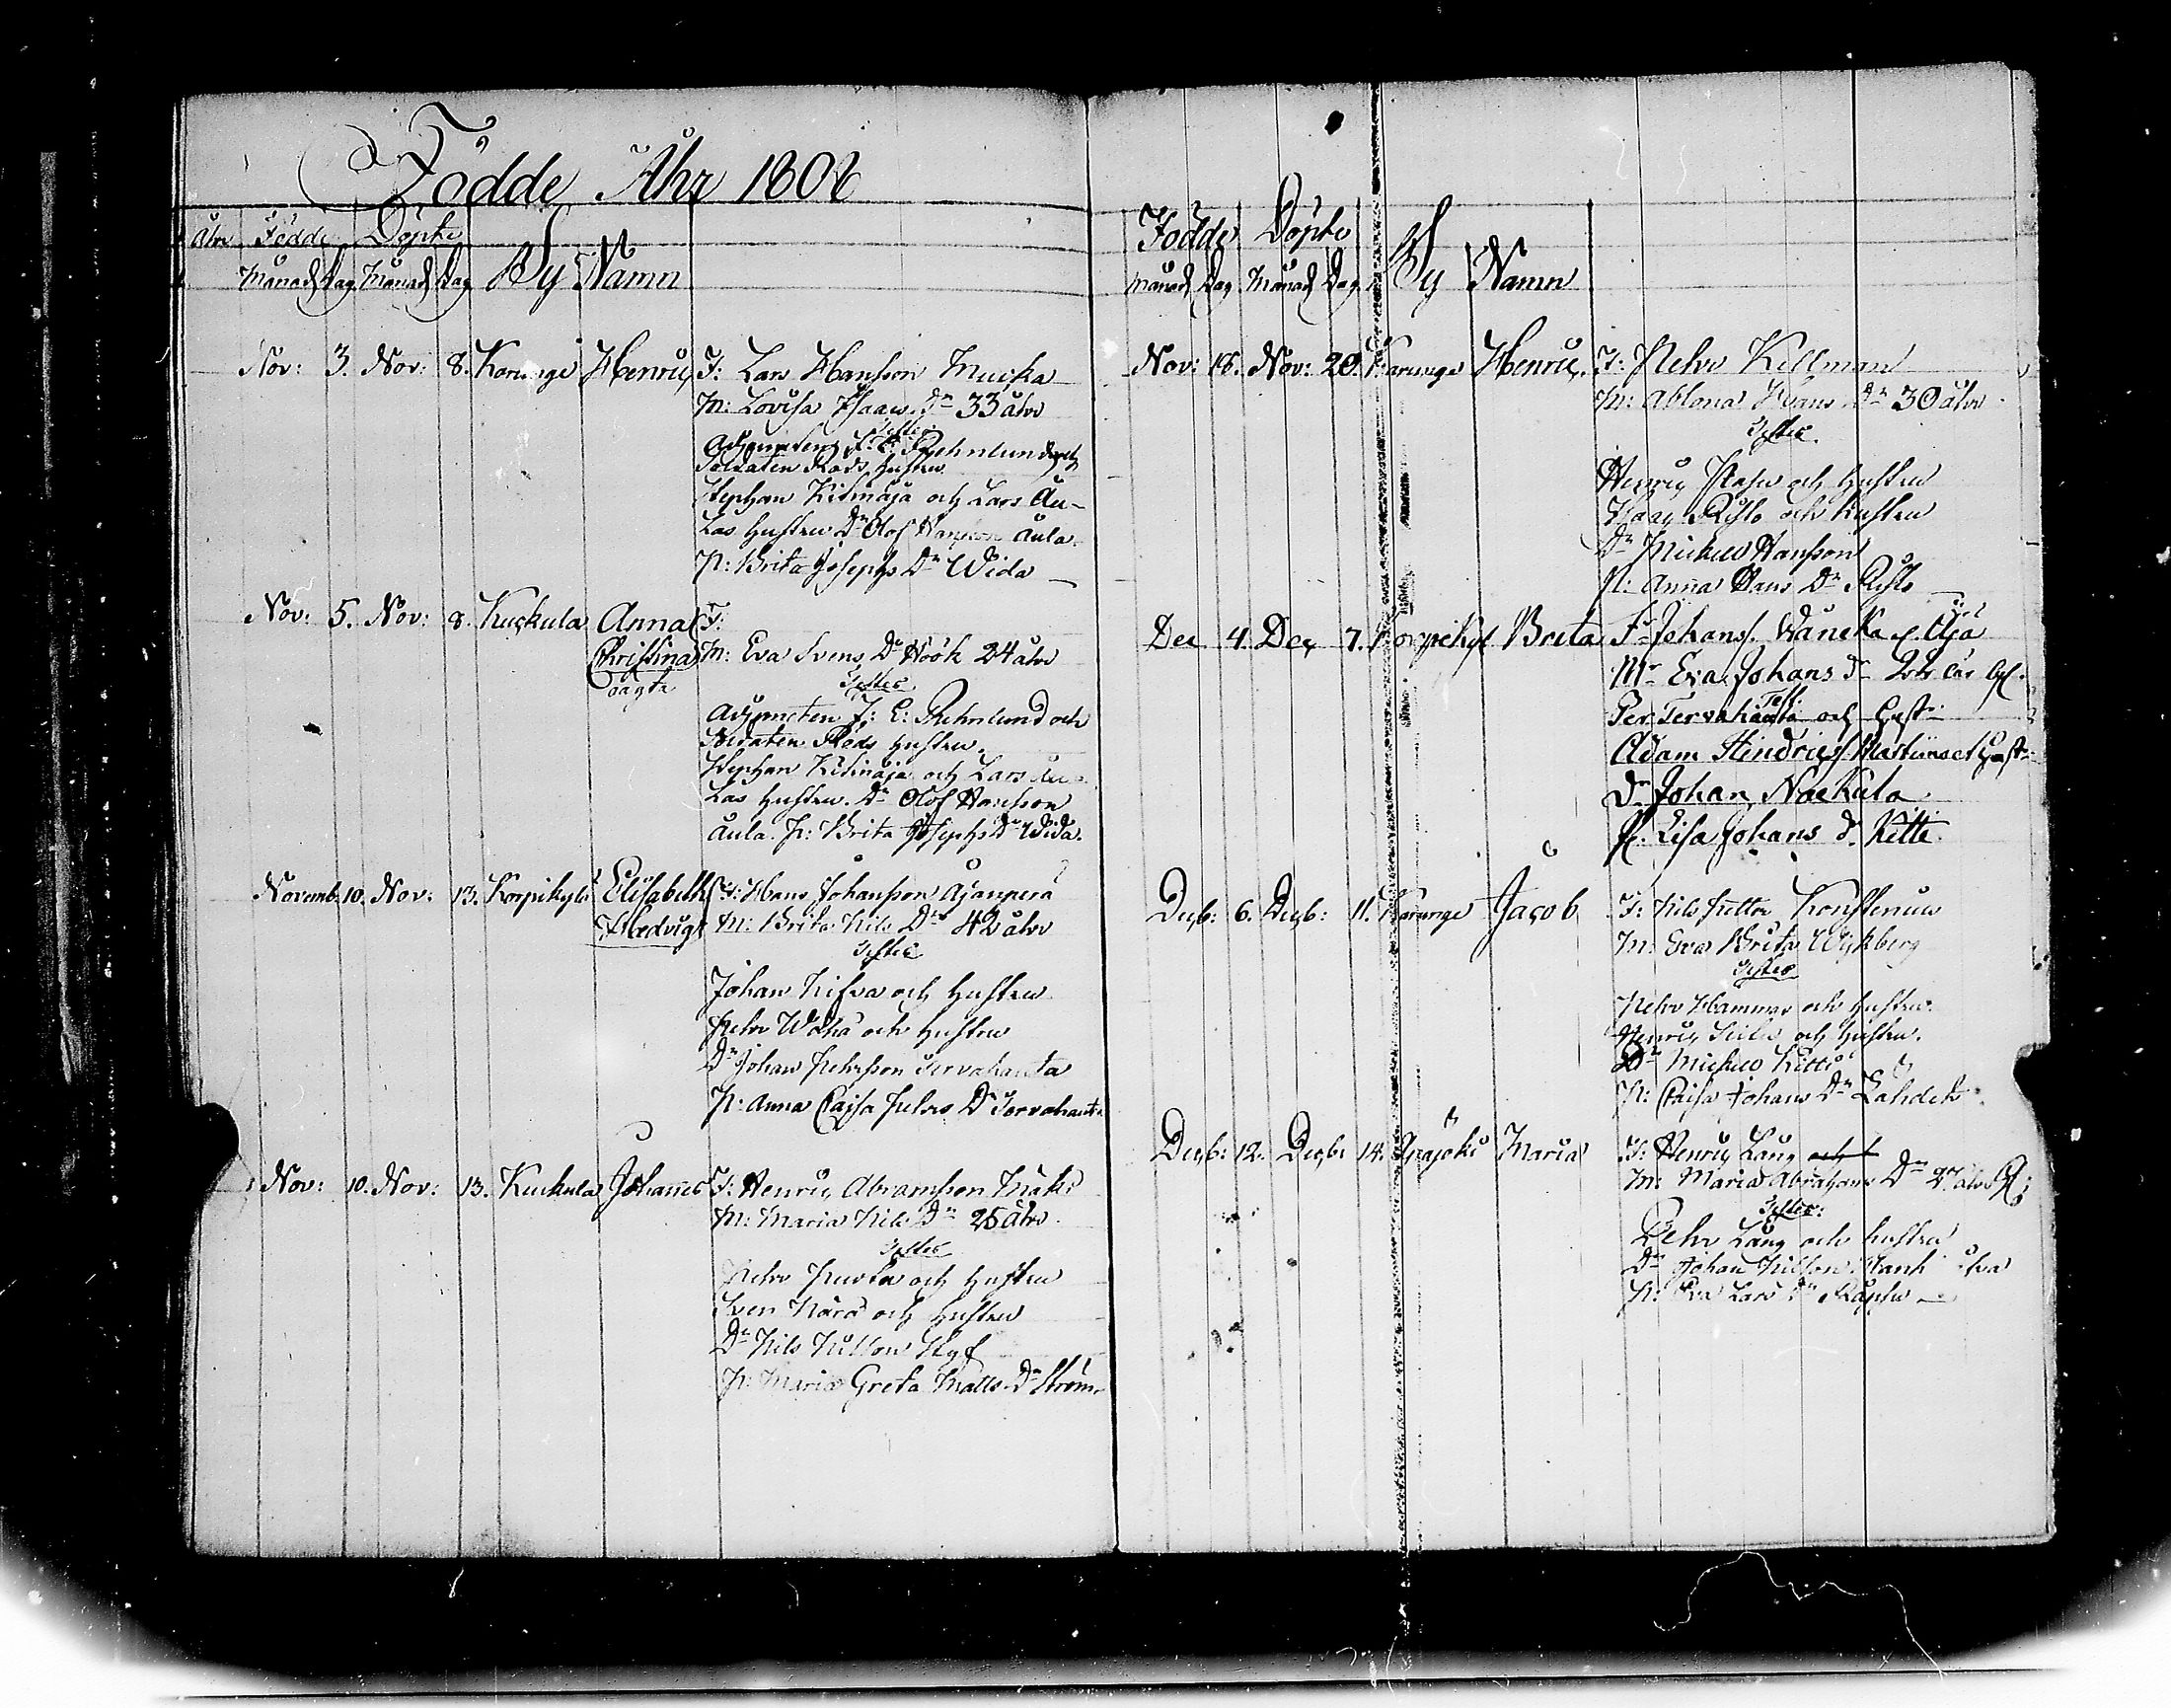 Födde Åhr 1808
Åhr Födde Döpte
Månad Dag Månad Dag By Namn
Nov: 3. Nov: 8. Karungi Henric F: Lars Hansson Mucka
M: Lovisa Isaacs Dr 33 åhr
Testes
Adjuncten J: E: Rehnlund och
Soldaten Röds hustru
Stephan Kitinöja och Lars Au-
las hustru Dr Olof Hansson Aula
P: Brita Josephs Dr Wida
Nov: 5. Nov: 8. Kuckula Anna F:
Christina M: Eva Svens Dr Höök 24 åhr
oägta Testes
Adjuncten J: E: Rehnlund och
Soldaten Röds hustru
Stephan Kitinöja och Lars Au-
las hustru. Dr Olof Hansson
Aula. P: Brita Josephs Dr Wida.
Novemb: 10. Nov: 13. Korpikylä Elisabeth F: Hans Johansson Äjänperä
Hedvig M: Brita Nils Dr 42 åhr
Testes
Johan Niska och hustru
Pehr Waha och hustru
Dr Johan Pehrsson Tervahauta
P: Anna Cajsa Pehrs Dr Tervahauta
Nov: 10. Nov: 13. Kuckula Johannes F: Henric Abramsson Mäki
M: Maria Nils Dr 25 åhr
Testes
Pehr och hustru
Sven Nära och hustru
Dr Nils Nilsson Styf
P: Maria Greta Matts Dr Ström
Födde Döpte
Månad Dag Månad Dag By Namn
Nov: 18. Nov: 20. Karunge Henric. F: Pehr Kellman
M: Ablona Hans Dr 30 åhr
Testes
Henric och hustru
Isaac Risto och hustru
Dr Mickel Hansson
P: Anna Hans Dr Risto
Dec 4. Dec 7. Korpikyl Brita F: Johans. Wäneka Äjä
Mr Eva Johans dr
Test.
Per Tervahauta och hust.
Adam Hindrics. et hust.
Dr Johan Näckula
P. Lisa Johans d. Kitti
Decb: 6. Decb: 11. Karunge Jacob F: Nils Petter Konstenius
M: Eva Brita Wijkberg
Testes
Pehr Hammar och hustru.
Henric och hustru.
Dr Mickel Kitti
P: Cajsa Johans Dr Lahdet
Decb: 12. Decb: 14. Maria F: Henric Lång och
M: Maria Abrahams Dr 27 åhr
Testes:
Pehr Lång och hustru
Dr Johan Nilsson
P: Eva Lars Dr